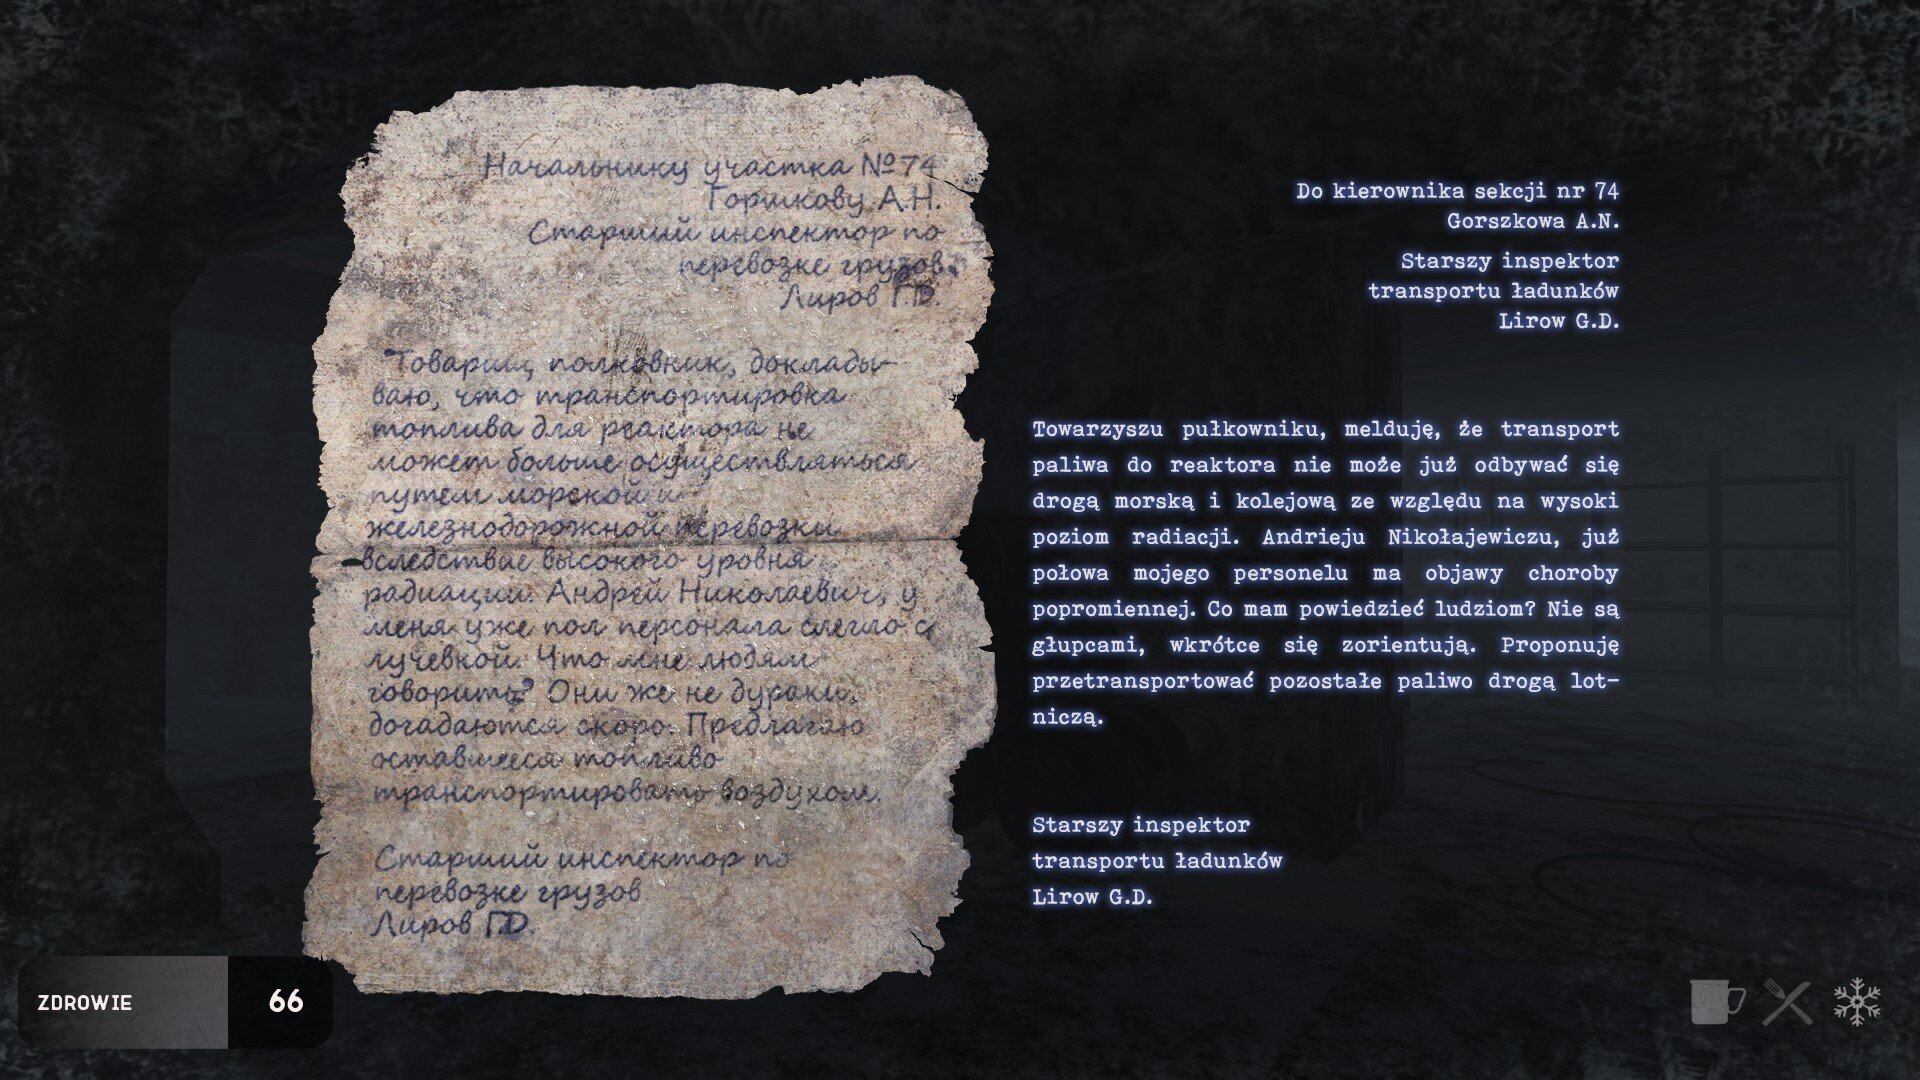 Начальнику участка №74
Горшкову А.Н.
Старший инспектор по
перевозке грузов
Лиров Г.D.
Товарищ полковник, доклады-
ваю, что транспортировка
топлива для реактора не
может больше осуществляться
путем морской и
железнодорожной перевозки
вследствие высокого уровня
радиации. Андрей Николаевич, у
меня уже пол персонала слегло с
лучевкой. Что мне людям
говорить? Они же не дураки,
догадаются скоро. Предлагаю
оставшееся топливо
транспортировать воздухом.
Старший инспектор по
перевозке грузов
Лиров Г.D.
Do kierownika sekcji nr 74
Gorszkowa A.N.
Starszy inspektor
transportu ładunków
Lirow G.D.
Towarzyszu pułkowniku, melduję, że transport
paliwa do reaktora nie może już odbywać się
drogą morską i kolejową ze względu na wysoki
poziom radiacji. Andrieju Nikołajewiczu, już
połowa mojego personelu ma objawy choroby
popromiennej. Co mam powiedzieć ludziom? Nie są
głupcami, wkrótce się zorientują. Proponuję
przetransportować pozostałe paliwo drogą lot-
niczą.
Starszy inspektor
transportu ładunków
Lirow G.D.
ZDROWIE 66